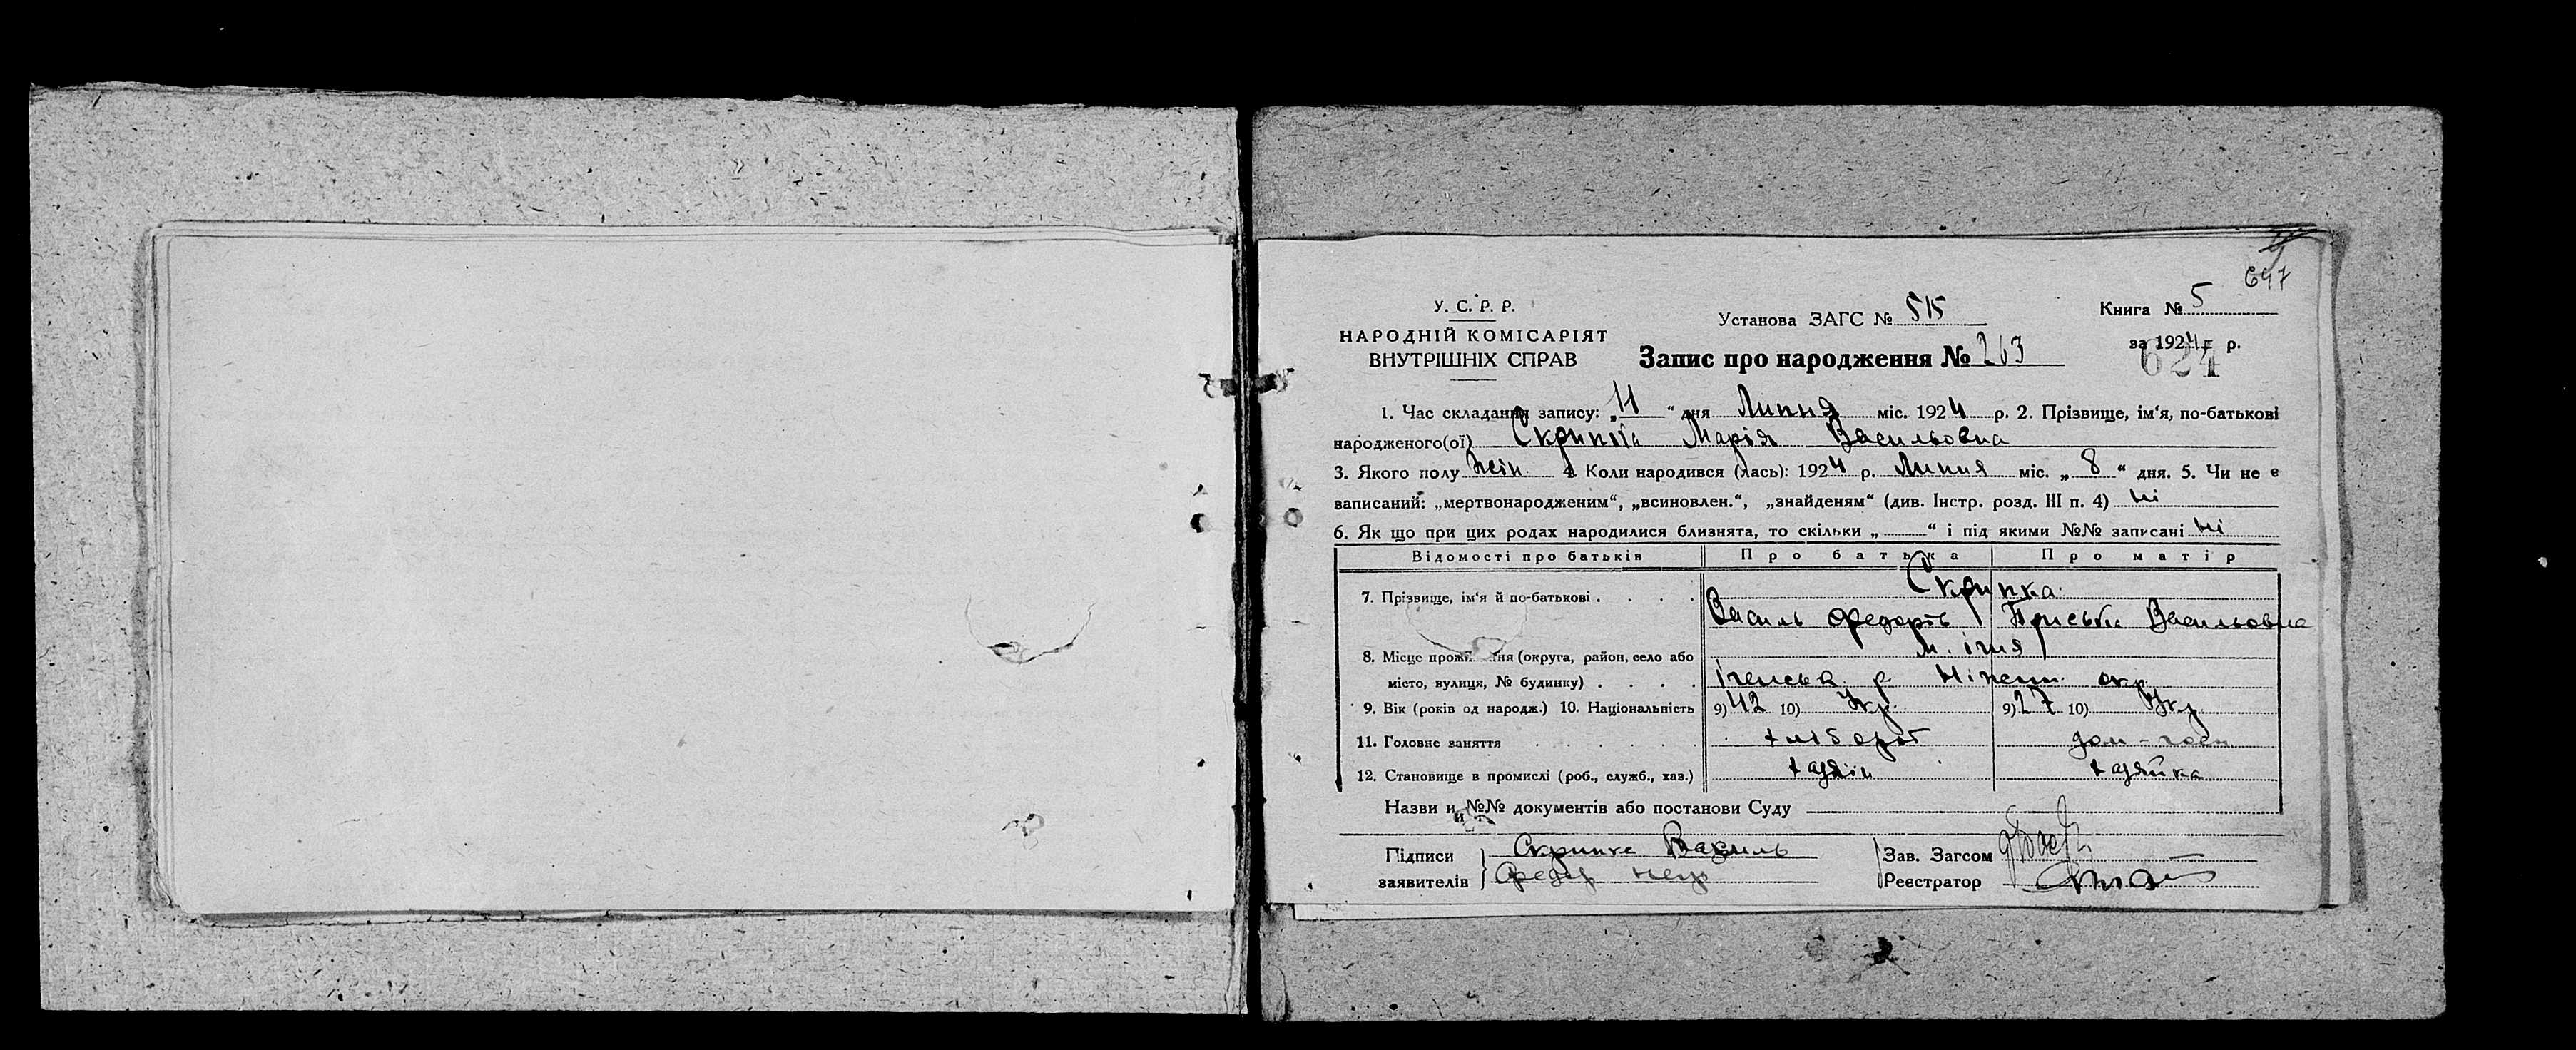 697
У. С. Р. Р.
НАРОДНІЙ КОМІСАРІЯТ
ВНУТРІШНІХ СПРАВ
Установа ЗАГС № 515
Запис про народження № 263
Книга № 5
за 1924 р.
624
1. Час складання запису: „11“ дня Липня міс. 1924 р. 2. Прізвище, ім'я, по-батькові
народженого(ої) Скрипка Марія Васильовна
3. Якого полу жін. 4. Коли народився (лась): 1924 р. Липня міс. „8“ дня. 5. Чи не є
записаний: „мертвонародженим“, „всиновлен.“, „знайденям“ (див. Інстр. розд. III п. 4) ні
6. Як що при цих родах народилися близнята, то скільки „ “ і під якими №№ записані ні
Відомості про батьків Про батька Про матір
7. Прізвище, ім'я й по-батькові Скрипка
Василь Федорів Приська Васильовна
8. Місце прожи ня (округа, район, село або м. ічня
місто, вулиця, № будинку) Іченськ. р Ніжен. окр.
9. Вік (років од народж.) 10. Національність 9) 42 10) Укр. 9) 27 10) Укр
11. Головне заняття хлібороб дом-госп
12. Становище в промислі (роб., служб., хаз.) хазяїн хазяйка
Назви и №№ документів або постанови Суду
Підписи Скрипка Василь Зав. Загсом
заявителів Федор Реєстратор